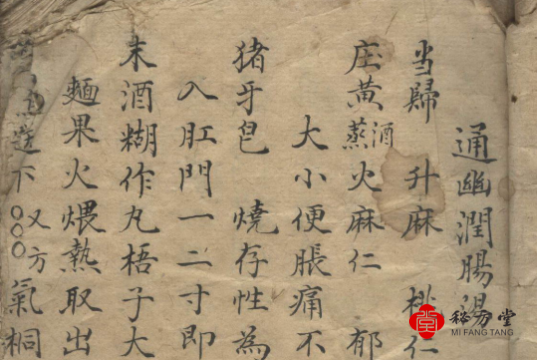 通幽潤腸湯
当歸 升麻 桃仁
庄黄酒蒸 火麻仁 郁
大小便脹痛不
猪牙皂 燒存性為
入肛門一二寸即
末酒糊作丸梧子大
麵果火煨熱取出
下○○○又方 氣桐
秘方堂
MI FANG TANG